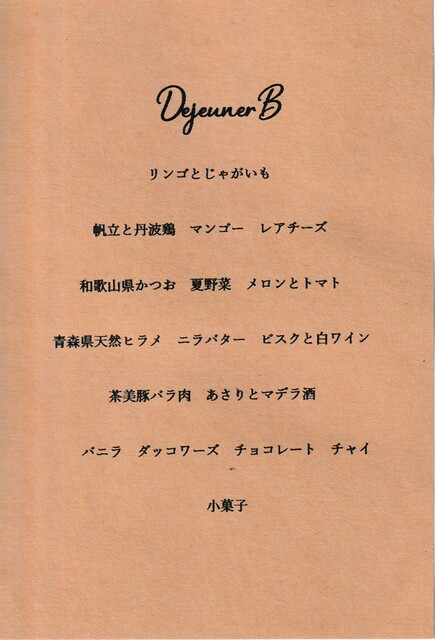 Dejeuner B
リンゴとじゃがいも
帆立と丹波鶏　マンゴー　レアチーズ
和歌山県かつお　夏野菜　メロンとトマト
青森県天然ヒラメ　ニラバター　ビスクと白ワイン
茶美豚バラ肉　あさりとマデラ酒
バニラ　ダッコワーズ　チョコレート　チャイ
小菓子